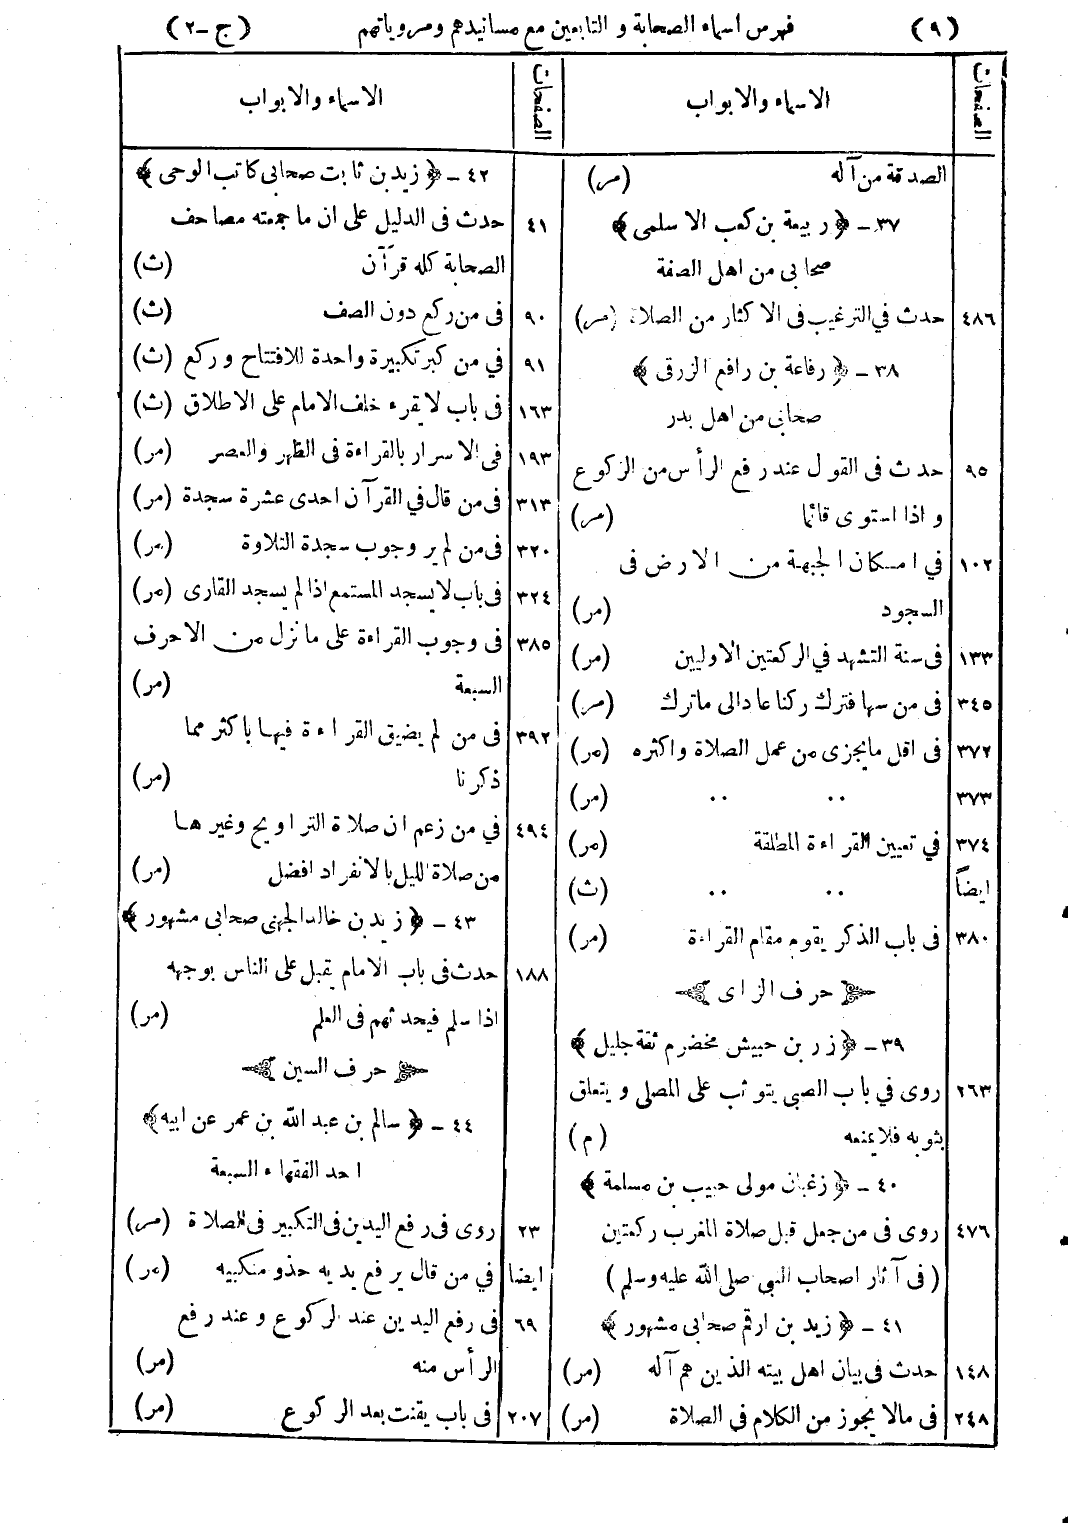 (٩) فهرس اسماء الصحابة و التابعين مع مسانيدهم ومروياتهم (ج-٢)
الصفحات الاسماء والابواب
الصدقة من آله (مر)
٣٧ - ﴿ ربيعة بن كعب الاسلمى ﴾
صحابى من اهل الصفة
٤٨٦ حدث في الترغيب فى الاكثار من الصلاة (مر)
٣٨ - ﴿ رفاعة بن رافع الزرقى ﴾
صحابى من اهل بدر
٩٥ حدث فى القول عند رفع الرأس من الركوع
و اذا استوى قائما (مر)
١٠٢ في امكان الجبهة من الارض فى
السجود (مر)
١٣٣ فى سنة التشهد في الركعتين الاوليين (مر)
٣٤٥ فى من سها فترك ركنا عاد الى ماترك (مر)
٣٧٢ فى اقل مايجزى من عمل الصلاة واكثره (مر)
٣٧٣ ‥ ‥ (مر)
٣٧٤ في تعيين القراءة المطلقة (مر)
ايضاً ‥ ‥ (ث)
٣٨٠ فى باب الذكر يقوم مقام القراءة (مر)
حرف الزاى
٣٩ - ﴿ زر بن حبيش مخضرم ثقة جليل ﴾
٢٦٣ روى في باب الصبى يتوثب على المصلى و يتعلق
بثوبه فلا يمنعه (م)
٤٠ - ﴿ زغبان مولى حبيب بن مسلمة ﴾
٤٧٦ روى فى من جعل قبل صلاة المغرب ركعتين
(فى آثار اصحاب النبى صلى الله عليه وسلم)
٤١ - ﴿ زيد بن ارقم صحابى مشهور ﴾
١٤٨ حدث فى بيان اهل بيته الذين هم آله (مر)
٢٤٨ فى مالا يجوز من الكلام فى الصلاة (مر)
الصفحات الاسماء والابواب
٤٢ - ﴿ زيد بن ثابت صحابى كاتب الوحى ﴾
٤١ حدث فى الدليل على ان ما جمعته مصاحف
الصحابة كله قرآن (ث)
٩٠ فى من ركع دون الصف (ث)
٩١ في من كبر تكبيرة واحدة للافتتاح وركع (ث)
١٦٣ فى باب لا يقرء خلف الامام على الاطلاق (ث)
١٩٣ فى الاسرار بالقراءة فى الظهر والعصر (مر)
٣١٣ فى من قال في القرآن احدى عشرة سجدة (مر)
٣٢٠ فى من لم ير وجوب سجدة التلاوة (مر)
٣٢٤ فى باب لا يسجد المستمع اذا لم يسجد القارى (مر)
٣٨٥ فى وجوب القراءة على ما نزل من الاحرف
السبعة (مر)
٣٩٢ فى من لم يضيق القراءة فيها باكثر مما
ذكرنا (مر)
٤٩٤ في من زعم ان صلاة التراويح وغيرها
من صلاة الليل بالانفراد افضل (مر)
٤٣ - ﴿ زيد بن خالد الجهنى صحابى مشهور ﴾
١٨٨ حدث فى باب الامام يقبل على الناس بوجهه
اذا سلم فيحدثهم فى العلم (مر)
حرف السين
٤٤ - ﴿ سالم بن عبد الله بن عمر عن ابيه ﴾
احد الفقهاء السبعة
٢٣ روى فى رفع اليدين فى التكبير فى الصلاة (مر)
ايضا في من قال يرفع يديه حذو منكبيه (مر)
٦٩ فى رفع اليدين عند الركوع و عند رفع
الرأس منه (مر)
٢٠٧ فى باب يقنت بعد الركوع (مر)